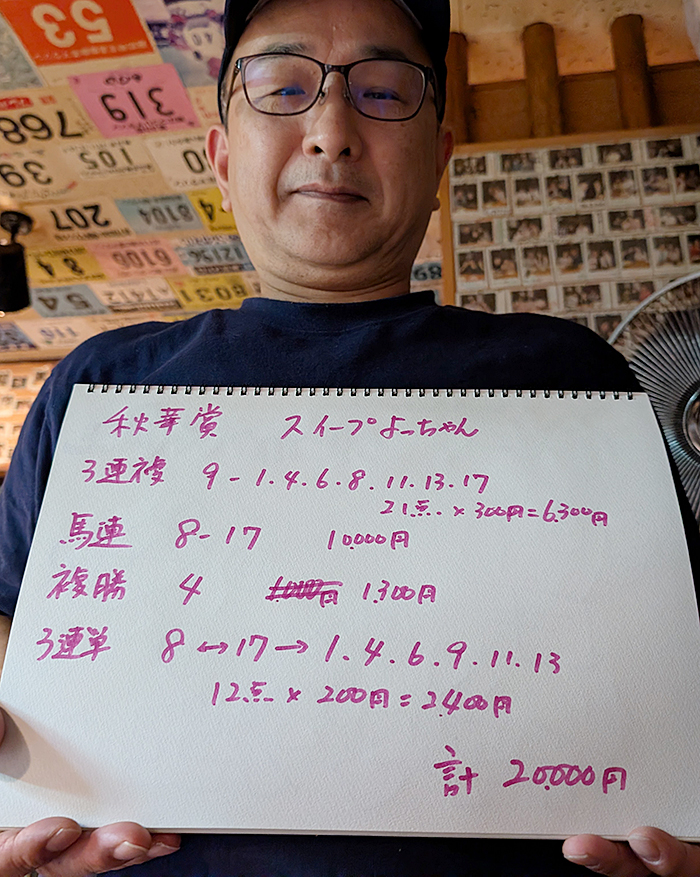 53
319
768
39
105
207
8104
6106
12156
54
11412
8031
89
秋華賞 スイープよっちゃん
3連複 9-1.4.6.8.11.13.17
21点×300円=6.300円
馬連 8-17 10.000円
複勝 4 1.300円
3連単 8↔17→1.4.6.9.11.13
12点×200円=2.400円
計 20.000円